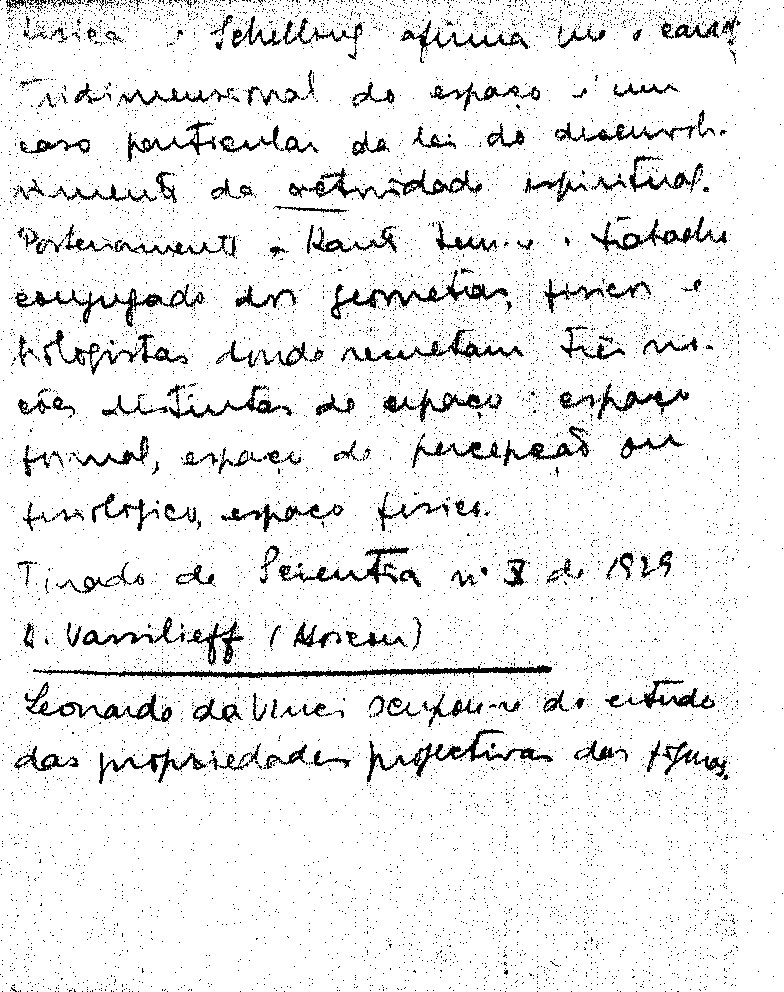 física e Schelling afirma que o caracter
tridimensional do espaço é um
caso particular da lei do desenvol-
vimento da actividade espiritual.
Posteriormente a Kant vem-se o trabalho
conjugado dos geómetras, físicos e
biologistas donde resultam três no-
ções distintas de espaço: espaço
formal, espaço de percepção ou
fisiológico, espaço físico.
Tirado de Scientia nº X de 1929
A. Vassilieff (Moscou)
Leonardo da Vinci ocupou-se do estudo
das propriedades projectivas das figuras.